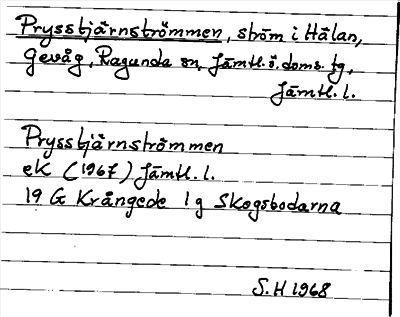 Prysstjärnströmmen, ström i Hälan,
Gevåg, Ragunda sn, Jämtl.ö.doms.tg,
Jämtl.l.
Prysstjärnströmmen
eK (1967) Jämtl.l.
19 G Krångede 1g Skogsbodarna
S.H 1968